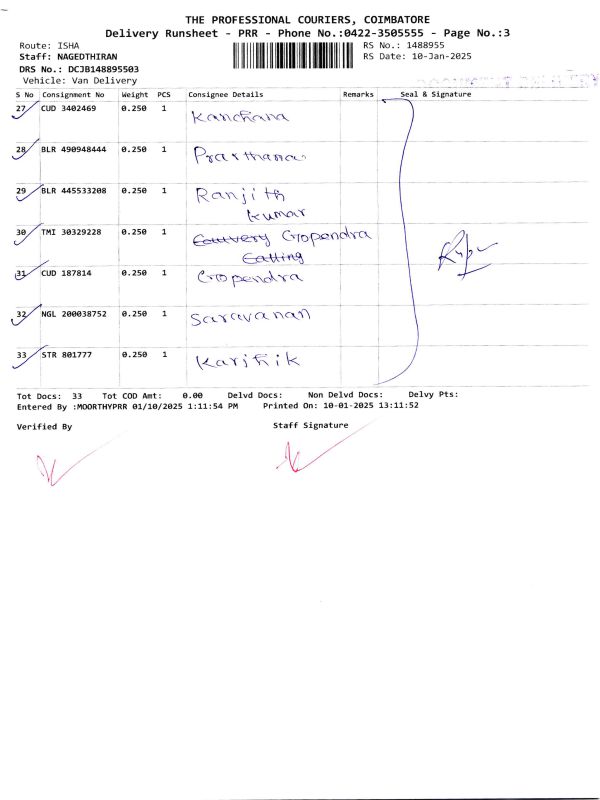 THE PROFESSIONAL COURIERS, COIMBATORE
Delivery Runsheet - PRR - Phone No.:0422-3505555 - Page No.:3
Route: ISHA RS No.: 1488955
Staff: NAGEDTHIRAN RS Date: 10-Jan-2025
DRS No.: DCJB148895503
Vehicle: Van Delivery
S No Consignment No Weight PCS Consignee Details Remarks Seal & Signature
27 CUD 3402469 0.250 1 Kanchana
28 BLR 490948444 0.250 1 Prarthana
29 BLR 445533208 0.250 1 Ranjith
Kumar
30 TMI 30329228 0.250 1 Gopendra
31 CUD 187814 0.250 1 Gopendra
32 NGL 200038752 0.250 1 Saravanan
33 STR 801777 0.250 1 Karthik
Tot Docs: 33 Tot COD Amt: 0.00 Delvd Docs: Non Delvd Docs: Delvy Pts:
Entered By :MOORTHYPRR 01/10/2025 1:11:54 PM Printed On: 10-01-2025 13:11:52
Verified By Staff Signature